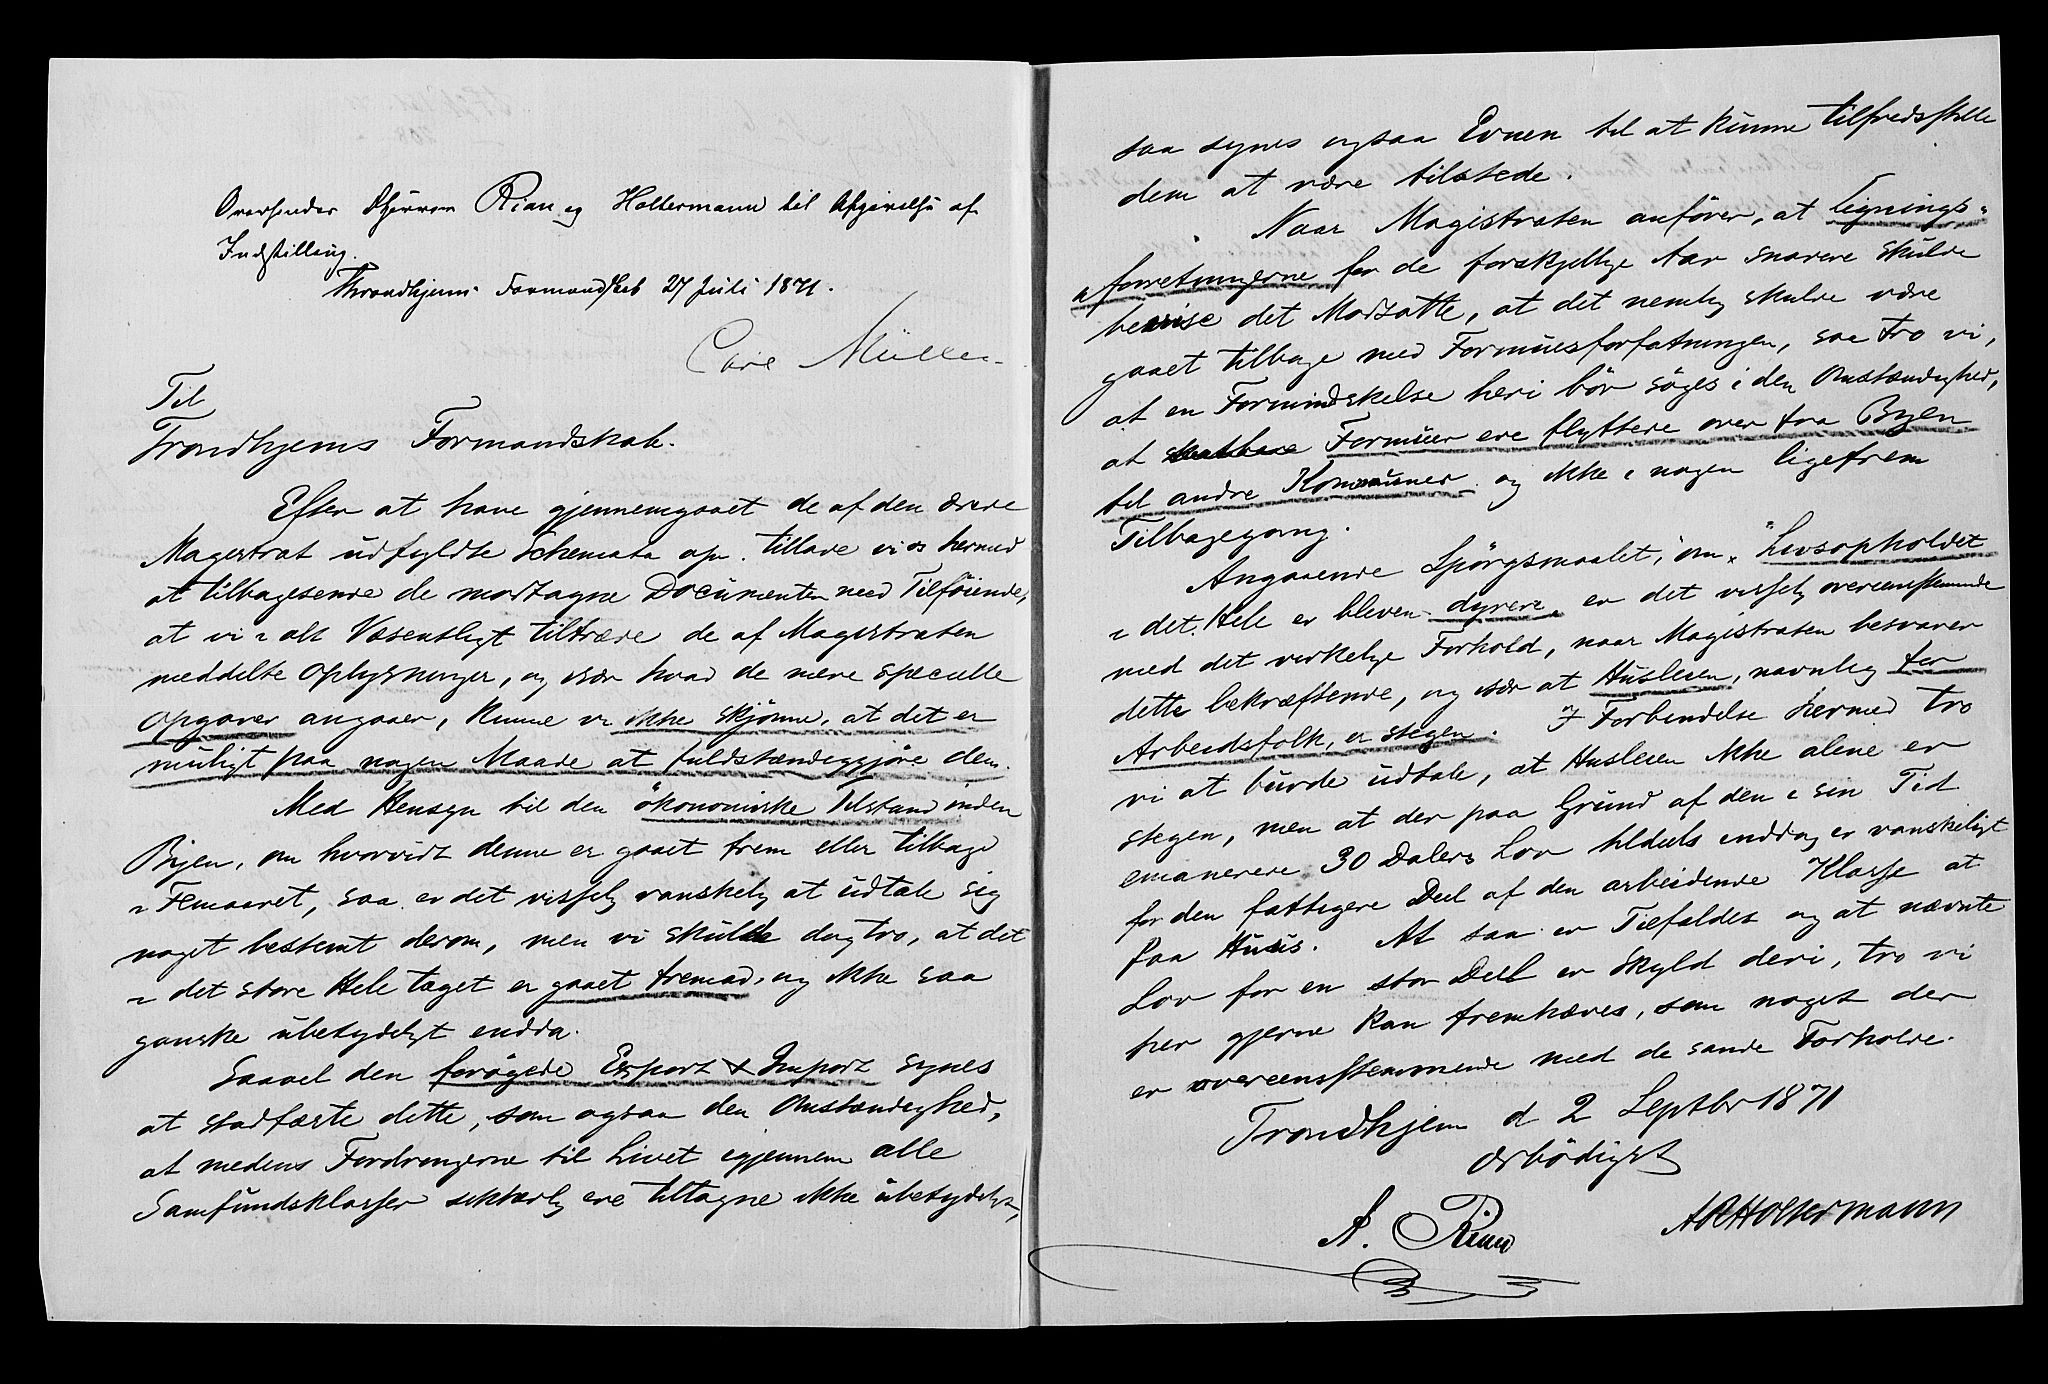 Oversendes DHerrer Rian og Holtermann til Afgivelse af
Indstilling.
Throndhjems Formandskab 27 Juli 1871.
Müller
Til
Trondhjems Formandskab.
Efter at have gjennemgaaet de af den ærede
Magistrat udfyldte Schemata opr. tillade vi os hermed
at tilbagesende de modtagne Documenter med Tilföiende,
at vi i alt Væsentligt tiltræde de af Magistraten
meddelte Oplysninger, og især hvad de mere specielle
Opgaver angaaer, kunne vi ikke skjönne, at det er
muligt paa nogen Maade at fuldstændiggjöre dem.
Med Hensyn til den ökonomiske Tilstand inden
Byen, om hvorvidt denne er gaaet frem eller tilbage
i Femaaret, saa er det visselig vanskelig at udtale sig
noget bestemt derom, men vi skulde dog tro, at det
i det store Hele taget er gaaet fremad, og ikke saa
ganske ubetydeligt endda.
Saavel den forögede Export & Import synes
at stadfæste dette, som ogsaa den Omstændighed,
at medens Fordringerne til Livet igjennem alle
Samfundsklasser sikkerlig ere tiltagne ikke ubetydeligt,
saa synes ogsaa Evnen til at kunne tilfredsstille
dem at være tilstede.
Naar Magistraten anförer, at Lignings-
forretningerne for de forskjellige Aar snarere skulde
bevise det Modsatte, at det nemlig skulde være
gaaet tilbage med Formuesforfatningen, saa tro vi,
at en Formindskelse heri bör söges i den Omstændighed,
at skatbare Formuer ere flyttede over fra Byen
til andre Kommuner og ikke i nogen ligefrem
Tilbagegang.
Angaaende Spörgsmaalet, om "Livsopholdet
i det Hele er bleven dyrere, er det visselig overeensstemmende
med det virkelige Forhold, naar Magistraten besvarer
dette bekræftende, og især at Husleien, navnlig for
Arbeidsfolk, er stegen. I Forbindelse hermed tro
vi at burde udtale, at Husleien ikke alene er
stegen, men at der paa Grund af den i sin Tid
emanerede 30 Dalers Lov tildeels endda er vanskeligt
for den fattigere Deel af den arbeidende Klasse at
faa Huus. At saa er Tilfældet og at nævnte
Lov for en stor Deel er Skyld deri, tro vi
her gjerne kan fremhæves, som noget der
er overeensstemmende med de sande Forholde.
Trondhjem d 2 Septbr 1871
ærbödigst
A. Rian AR Holtermann